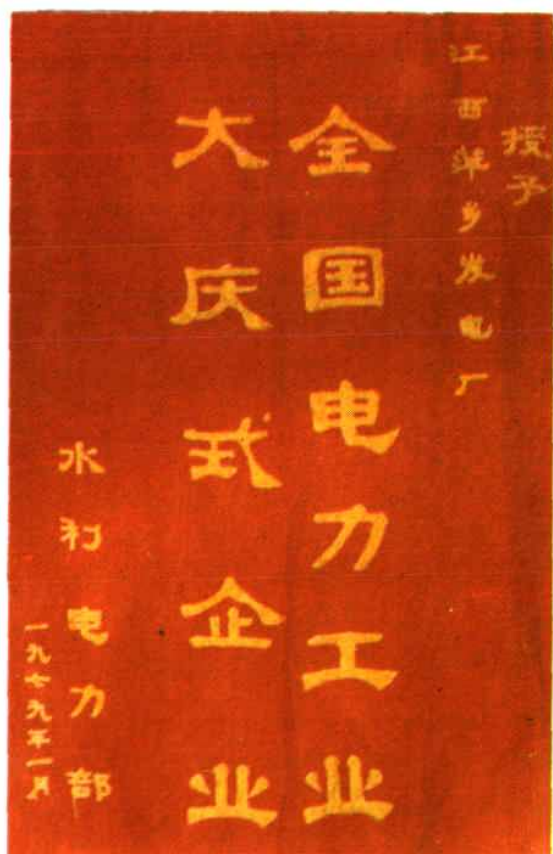 授予
江西萍乡发电厂
全国电力工业
大庆式企业
水利电力部
一九七九年一月